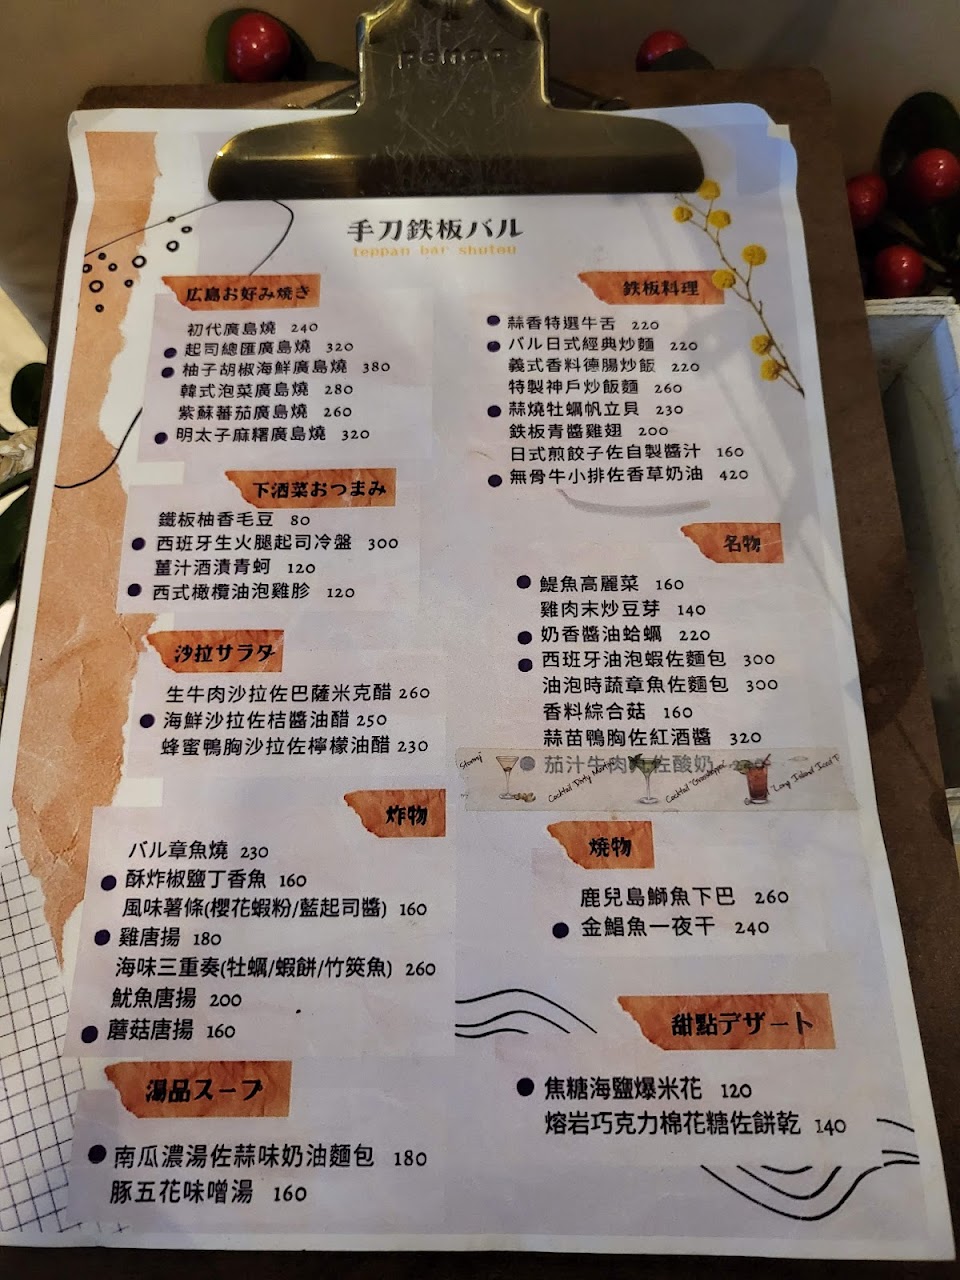 手刀鉄板バル
teppan bar shutou
広島お好み焼き
初代廣島燒 240
起司總匯廣島燒 320
柚子胡椒海鮮廣島燒 380
韓式泡菜廣島燒 280
紫蘇蕃茄廣島燒 260
明太子麻糬廣島燒 320
下酒菜おつまみ
鐵板柚香毛豆 80
西班牙生火腿起司冷盤 300
薑汁酒漬青蚵 120
西式橄欖油泡雞胗 120
沙拉サラダ
生牛肉沙拉佐巴薩米克醋 260
海鮮沙拉佐桔醬油醋 250
蜂蜜鴨胸沙拉佐檸檬油醋 230
炸物
バル章魚燒 230
酥炸椒鹽丁香魚 160
風味薯條(櫻花蝦粉/藍起司醬) 160
雞唐揚 180
海味三重奏(牡蠣/蝦餅/竹筴魚) 260
魷魚唐揚 200
蘑菇唐揚 160
湯品スープ
南瓜濃湯佐蒜味奶油麵包 180
豚五花味噌湯 160
鉄板料理
蒜香特選牛舌 220
バル日式經典炒麵 220
義式香料德腸炒飯 220
特製神戶炒飯麵 260
蒜燒牡蠣帆立貝 230
鉄板青醬雞翅 200
日式煎餃子佐自製醬汁 160
無骨牛小排佐香草奶油 420
名物
鯷魚高麗菜 160
雞肉末炒豆芽 140
奶香醬油蛤蠣 220
西班牙油泡蝦佐麵包 300
油泡時蔬章魚佐麵包 300
香料綜合菇 160
蒜苗鴨胸佐紅酒醬 320
茄汁牛肉佐酸奶
Cocktail Dirty Martini
Cocktail "Grasshopper"
"Long Island Iced T
焼物
鹿兒島鰤魚下巴 260
金鯧魚一夜干 240
甜點デザート
焦糖海鹽爆米花 120
熔岩巧克力棉花糖佐餅乾 140